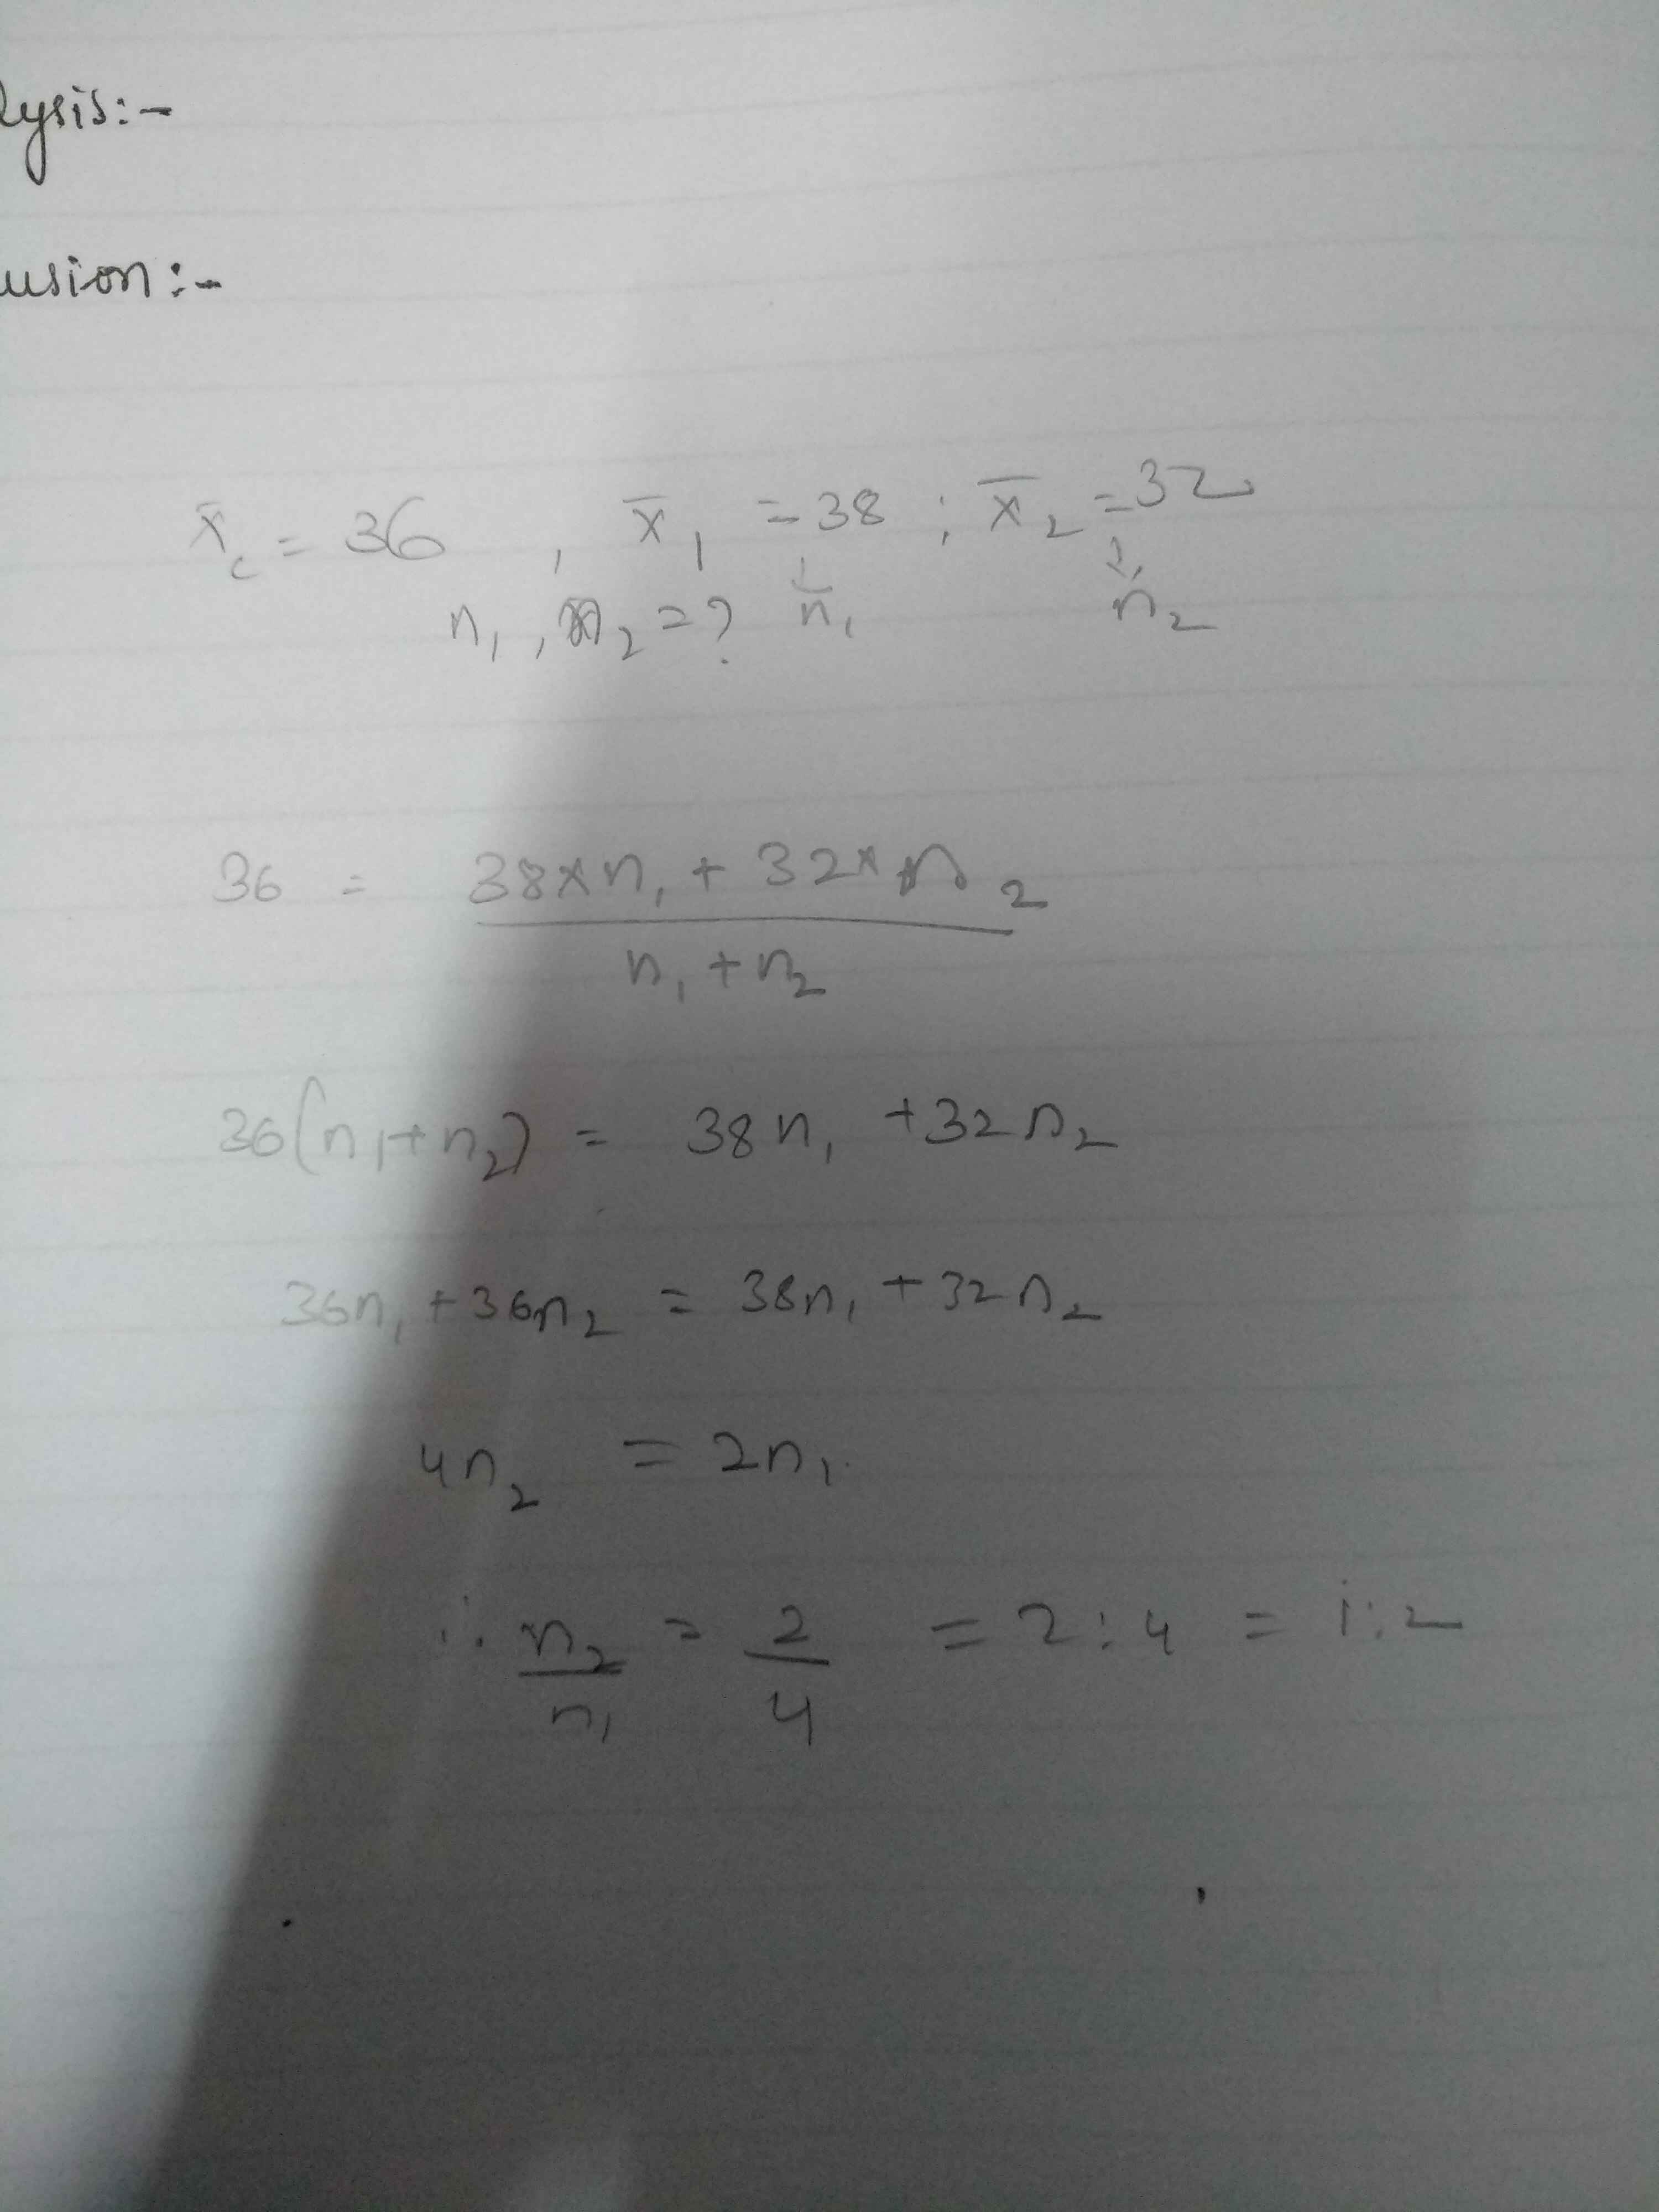 lysis:-
usion:-
x̄c = 36 , x̄₁ = 38 ; x̄₂ = 32
↓ ↓
n₁, n₂ = ? n₁ n₂
36 = 38×n₁ + 32×n₂
n₁ + n₂
36(n₁+n₂) = 38n₁ + 32n₂
36n₁ + 36n₂ = 38n₁ + 32n₂
4n₂ = 2n₁.
∴ n₂ = 2 = 2:4 = 1:2
n₁ 4